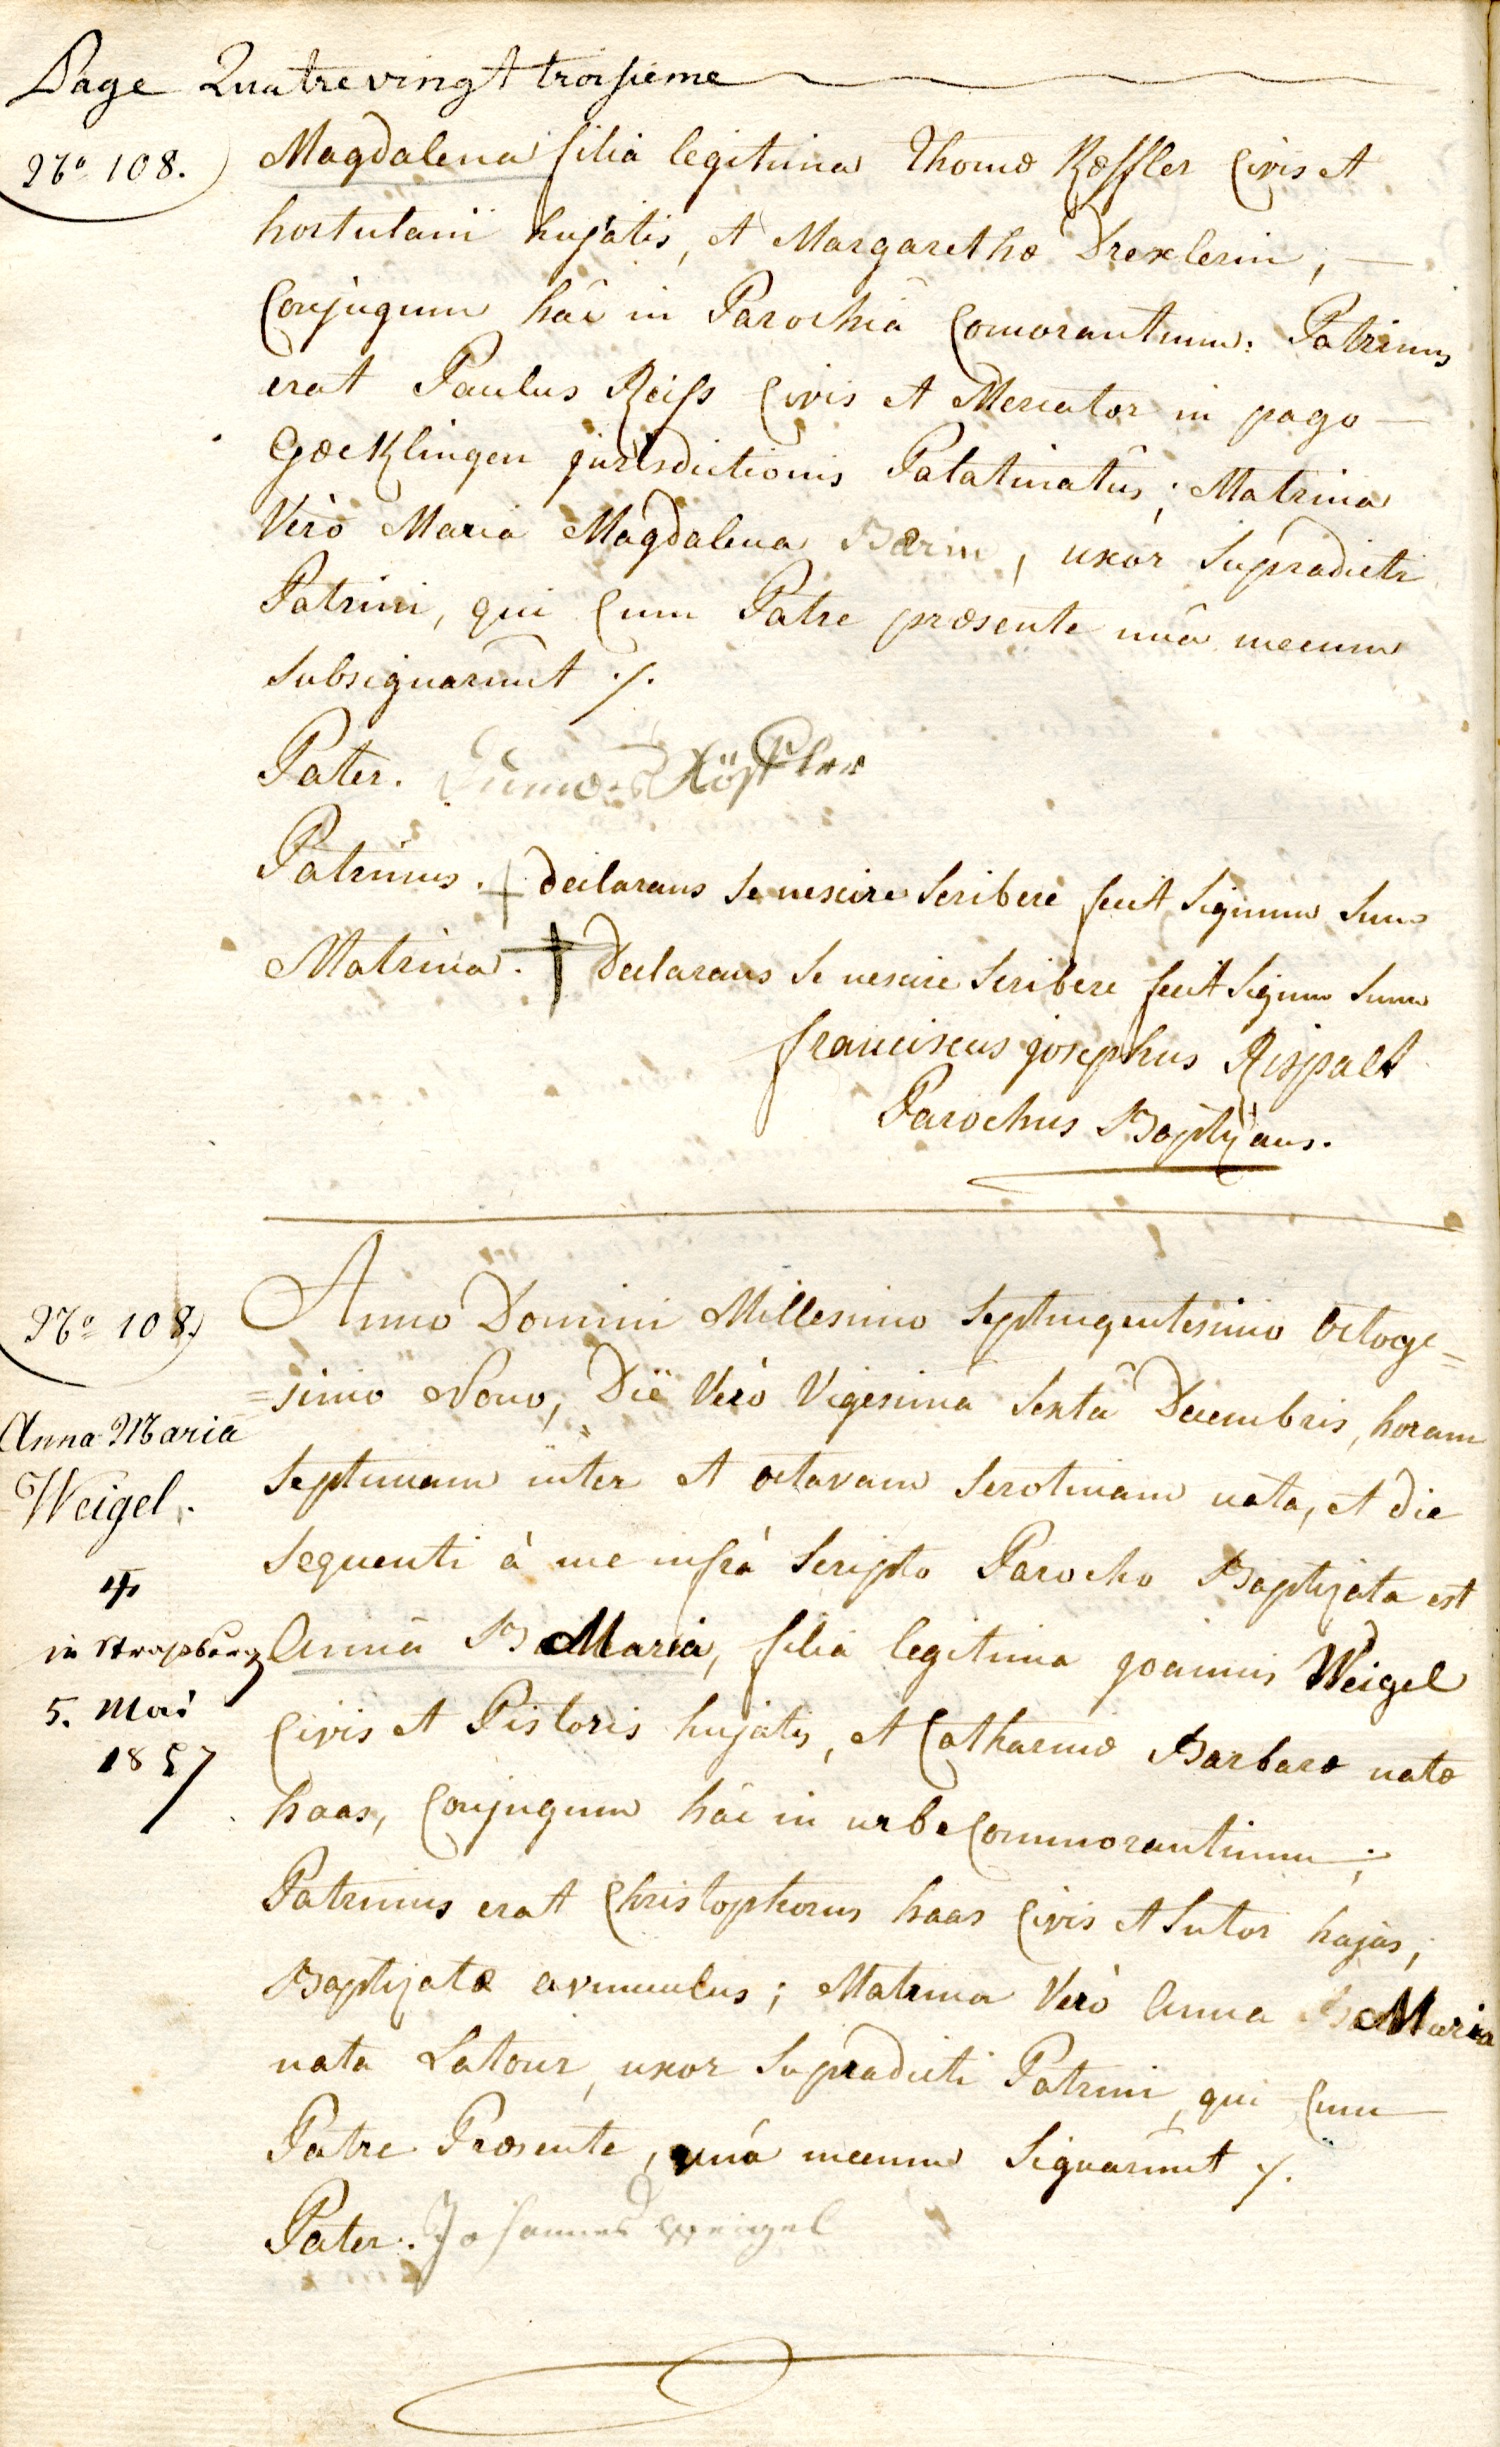 Page Quatrevingt troisieme
No 108.
Magdalena filia legitima Thomæ Rœssler Civis et
hortulani hujatis, et Margarethæ Drexlerin, —
Conjugum hâc in Parochiâ Comorantium: Patrinus
erat Paulus Reiss Civis et Mercator in pago —
Gœcklingen jurisdictionis Palatinatûs; Matrina
Verò Maria Magdalena Bærin, uxor Supradicti
Patrini, qui Cum Patre præsente unâ mecum
Subsignarunt ./.
Pater. Rössler
Patrinus. † declarans Se nescire Scribere fecit Signum Suum
Matrina. † declarans Se nescire Scribere fecit Signum Suum
franciscus josephus Rispalt
Parochus Baptizans.
No 108.
Anno Domini Millesimo Septingentesimo Octoge=
=simo Nono, Die Verò Vigesimâ Sextâ Decembris, horam
Anna Maria
Septimam inter et octavam Serotinam nata, et die
Weigel.
Sequenti à me infrà Scripto Parocho Baptizata est
†
Anna B Maria, filia legitima joannis Weigel
in Strassburg
Civis et Pistoris hujatis, et Catharinæ Barbaræ natæ
5. Mai
1857
haas, Conjugum hâc in urbe Commorantium;
Patrinus erat Christophorus haas Civis et Sutor hujas,
Baptizatæ avunculus; Matrina Verò Anna Maria
nata Latour, uxor Supradicti Patrini, qui Cum
Patre Præsente, unà mecum Signarunt ./.
Pater. Johannes Weigel